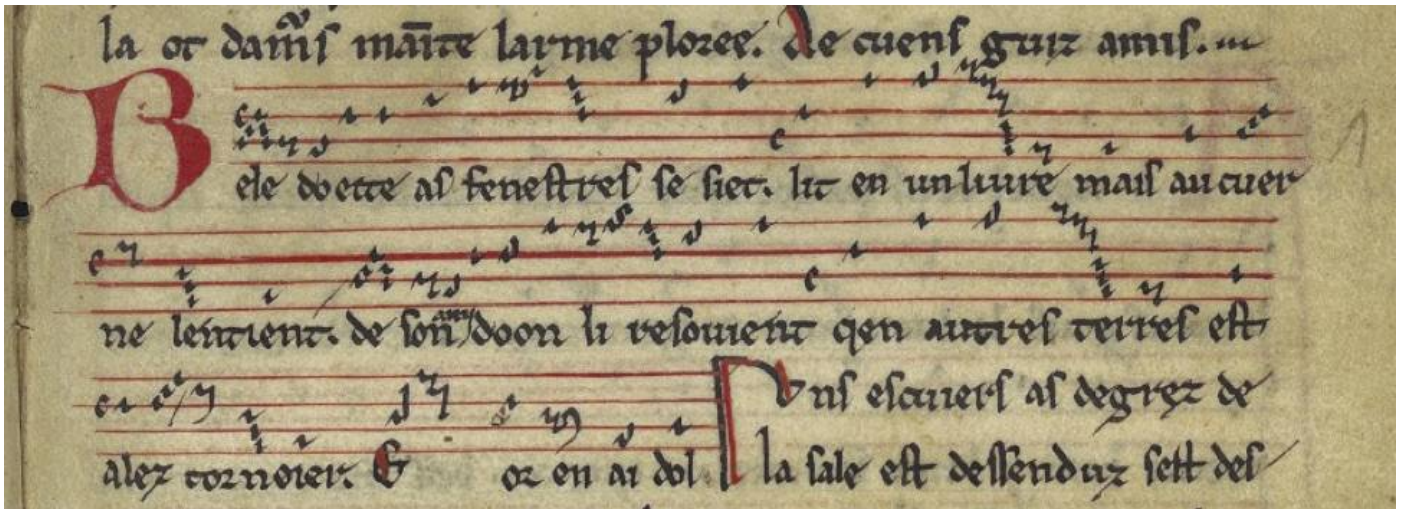 la ot dam̃s mãite larme ploree. De cuens guiz amis. ...
Bele doette as fenestres se siet. lit en un liure mais au cuer
ne lentient. de soñ ami doon li resouient qen autres terres est
alez tornoier. E or en ai dol Uns escuiers as degrez de
la sale est dessenduz sest des